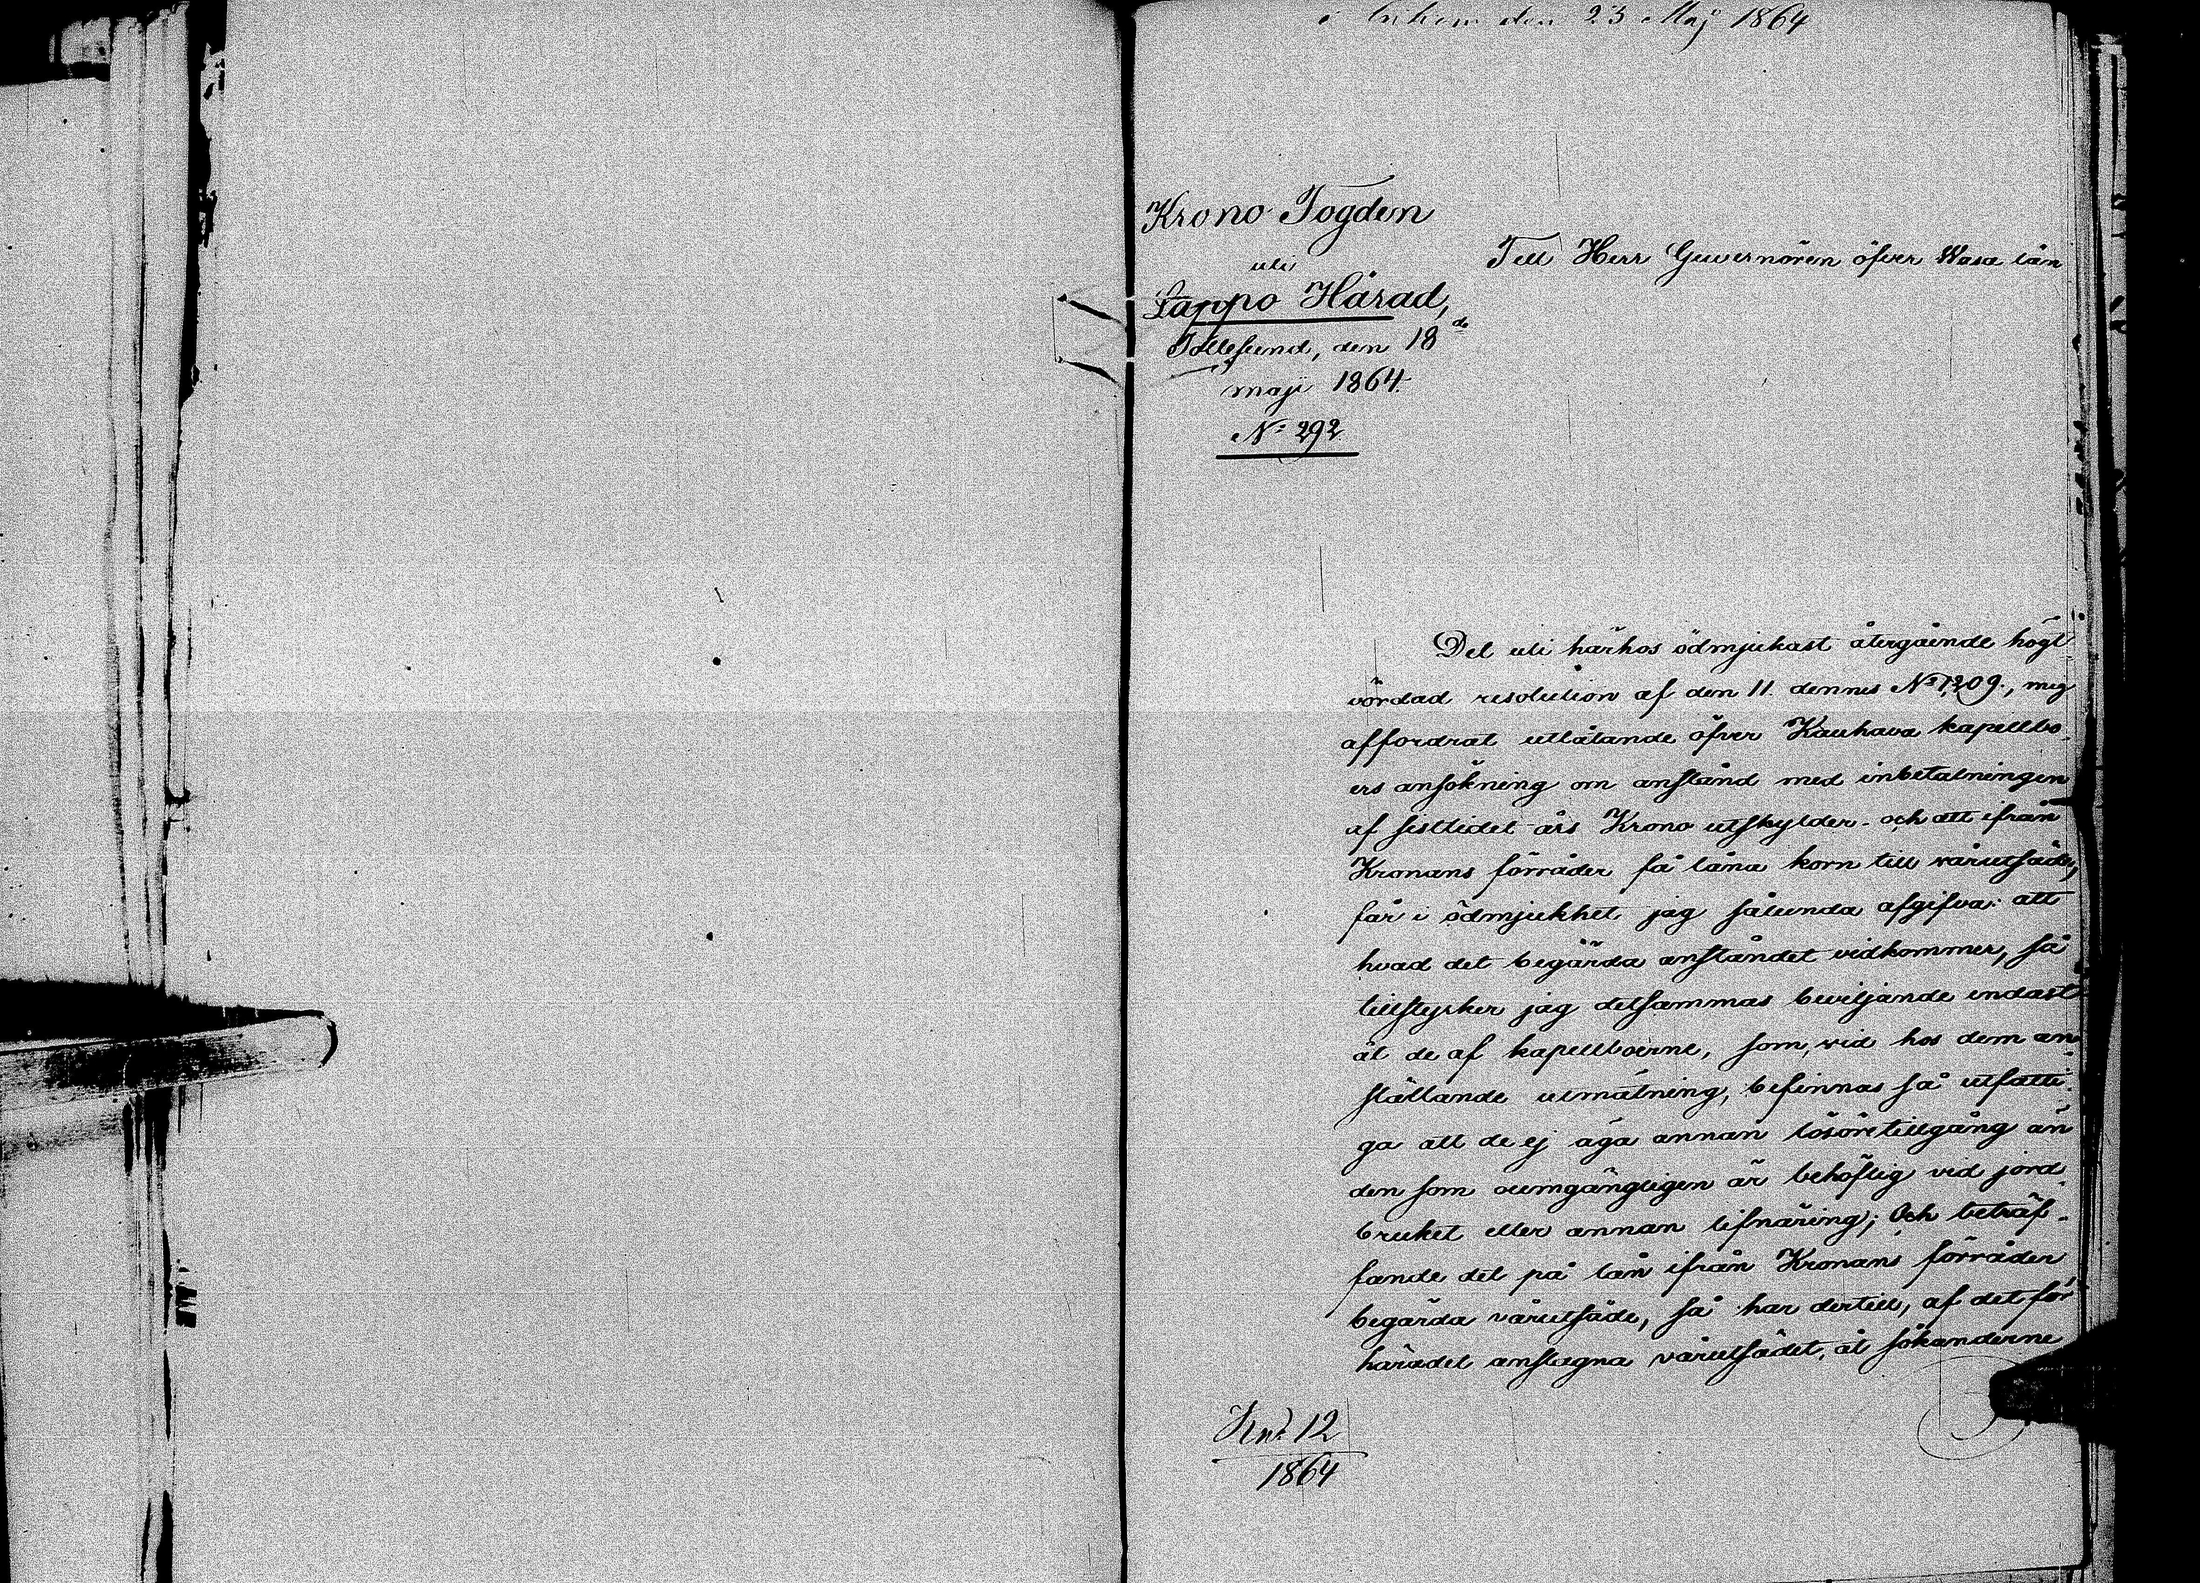 i den 23 Maj 1864
Krono Fogden
uti
Lappo Härad,
den 18de
maji 1864.
No 292
Till Herr Guvernören öfver Wasa län
Det uti härhos ödmjukast återgående högt
vördad resolution af den 11. dennes No 1209., mig
affordrat utlåtande öfver Kauhava kapellbo-
ers ansökning om anstånd med inbetalningen
af sistlidet års Krono utskylder - och att ifrån
Kronans förråder få låna korn till vårutsäde,
får i ödmjukhet jag sålunda afgifva: att
hvad det begärda anståndet vidkommer, så
tillstyrker jag detsammas beviljande endast
åt de af kapellboerne, som, vid hos dem an-
ställande utmätning, befinnas så utfatti-
ga att de ej äga annan lösöretillgång än
den som oumgängligen är behöflig vid jord-
bruket eller annan lifnäring; Och beträf-
fande det på lån ifrån Kronans förråder
begärda vårutsäde, så har dertill, af det för
häradet anslagna vårutsädet, åt sökanderne
Kn. 12
1864